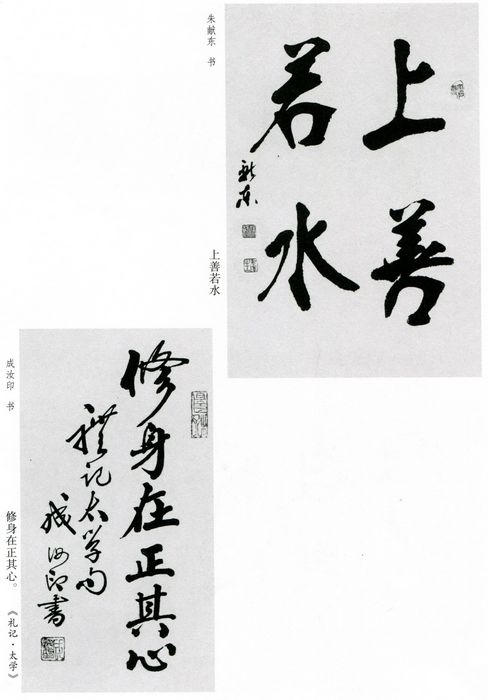 上善
若水
献东
上善若水
朱献东 书
修身在正其心
禮记太学句
成汝印書
修身在正其心。 《礼记·太学》
成汝印 书